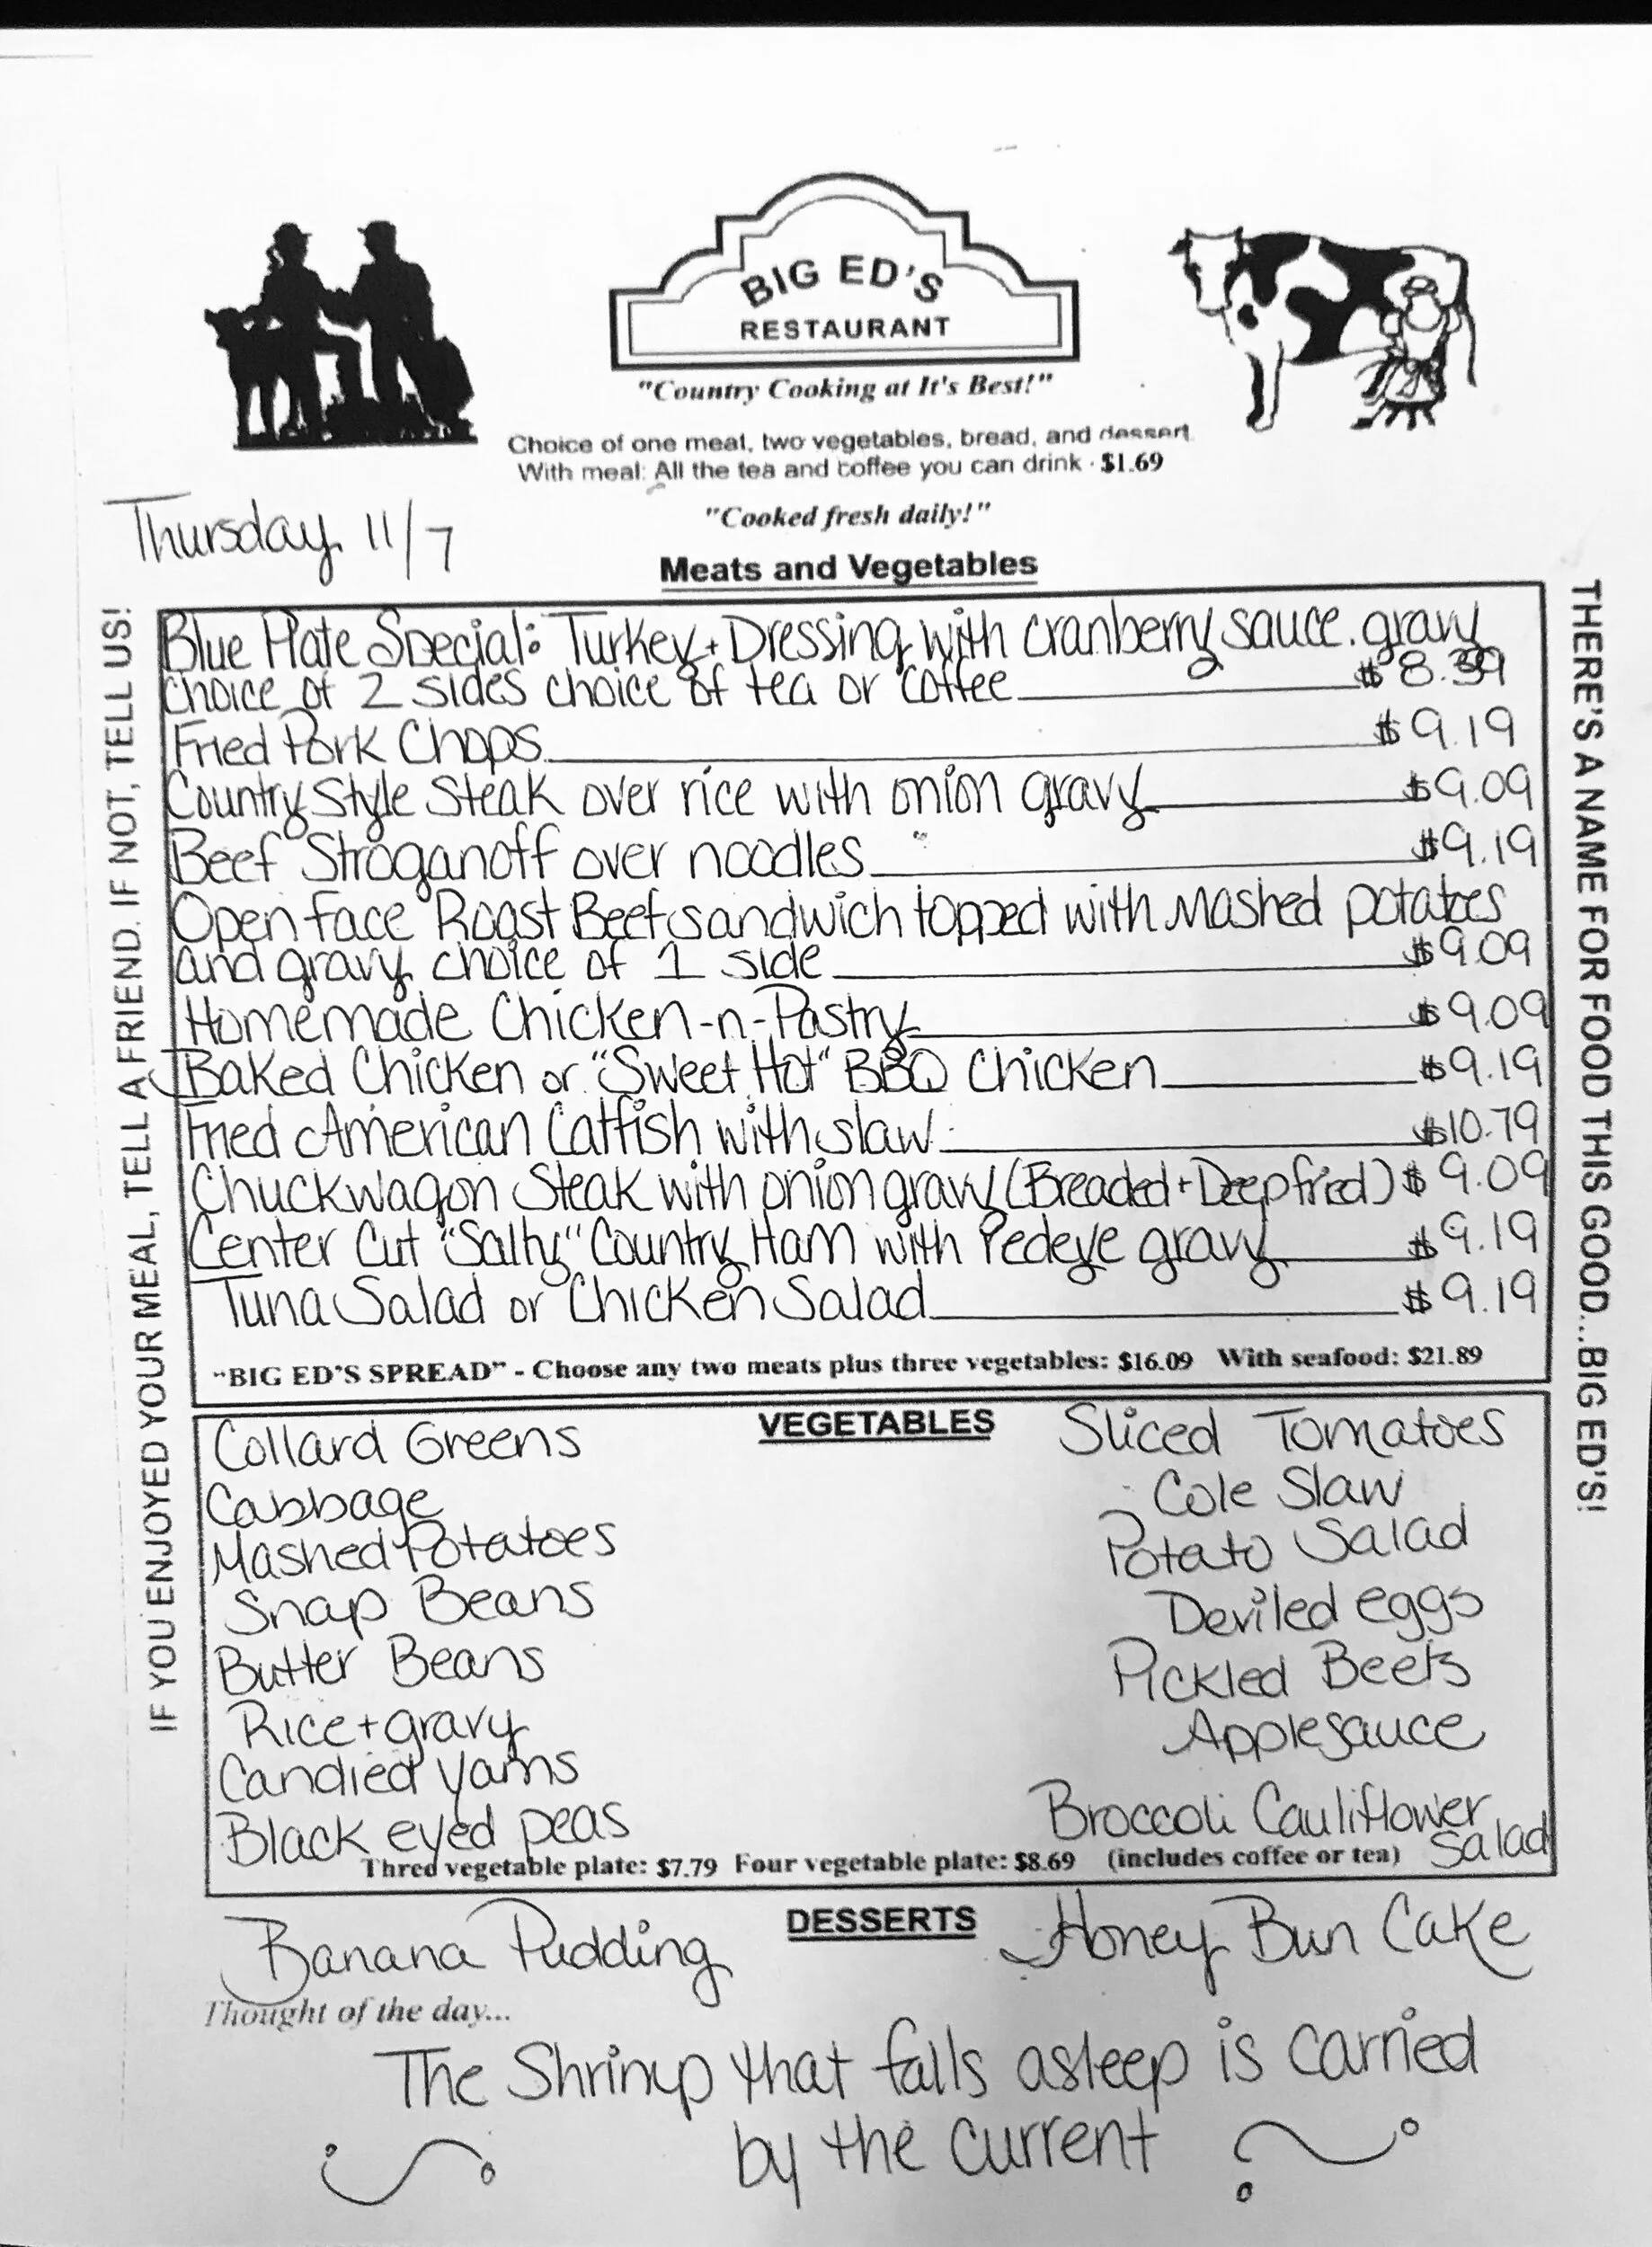 BIG ED'S
RESTAURANT
"Country Cooking at It's Best!"
Choice of one meat, two vegetables, bread, and dessert
With meal: All the tea and coffee you can drink · $1.69
"Cooked fresh daily!"
Thursday 11/7
Meats and Vegetables
IF YOU ENJOYED YOUR MEAL, TELL A FRIEND. IF NOT, TELL US!
THERE'S A NAME FOR FOOD THIS GOOD...BIG ED'S!
Blue Plate Special: Turkey + Dressing with cranberry sauce. gravy
choice of 2 sides choice of tea or coffee $8.39
Fried Pork Chops $9.19
Country Style Steak over rice with onion gravy $9.09
Beef Stroganoff over noodles $9.19
Open face Roast Beef sandwich topped with Mashed potatoes
and gravy choice of 1 side $9.09
Homemade Chicken-n-Pastry $9.09
Baked Chicken or "Sweet Hot" BBQ Chicken $9.19
Fried American Catfish with slaw $10.79
Chuckwagon Steak with onion gravy (Breaded + Deep fried) $9.09
Center Cut "Salty" Country Ham with Redeye gravy $9.19
Tuna Salad or Chicken Salad $9.19
"BIG ED'S SPREAD" - Choose any two meats plus three vegetables: $16.09 With seafood: $21.89
VEGETABLES
Collard Greens
Cabbage
Mashed Potatoes
Snap Beans
Butter Beans
Rice + gravy
Candied Yams
Black eyed peas
Sliced Tomatoes
Cole Slaw
Potato Salad
Deviled eggs
Pickled Beets
Applesauce
Broccoli Cauliflower
Salad
Three vegetable plate: $7.79 Four vegetable plate: $8.69 (includes coffee or tea)
DESSERTS
Banana Pudding
Honey Bun Cake
Thought of the day...
The Shrimp that falls asleep is carried
by the current